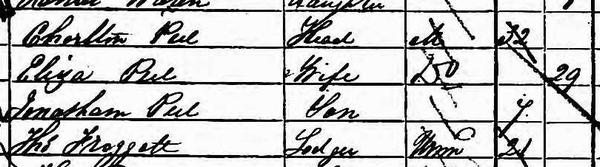 Daughter
Chorlton Peel Head M 32
Eliza Peel Wife Do 29
Jonathan Peel Son 7
Thos Froggatt Lodger Unm 21